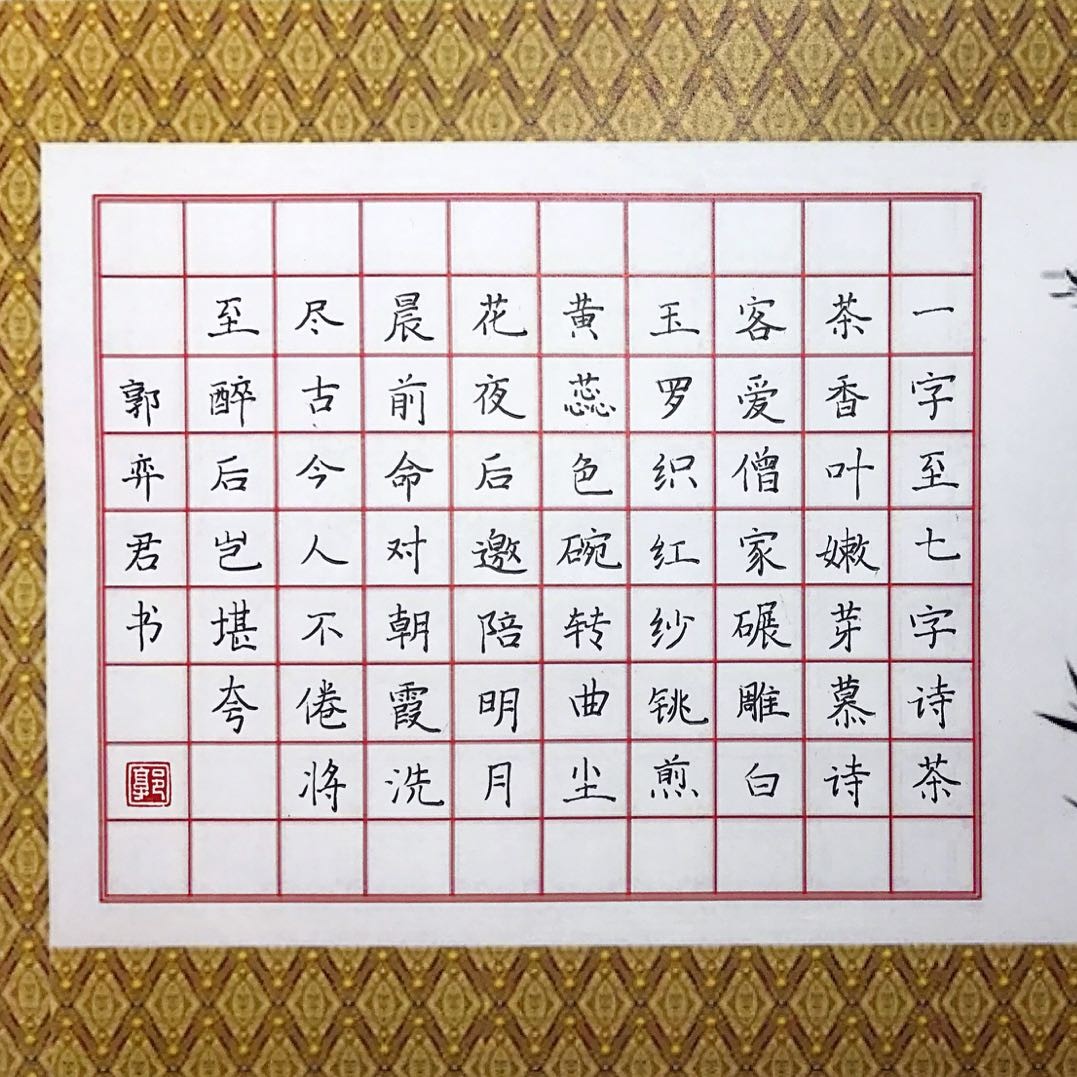 一字至七字诗茶
茶香叶嫩芽慕诗
客爱僧家碾雕白
玉罗织红纱铫煎
黄蕊色碗转曲尘
花夜后邀陪明月
晨前命对朝霞洗
尽古今人不倦将
至醉后岂堪夸
郭弈君书
郭